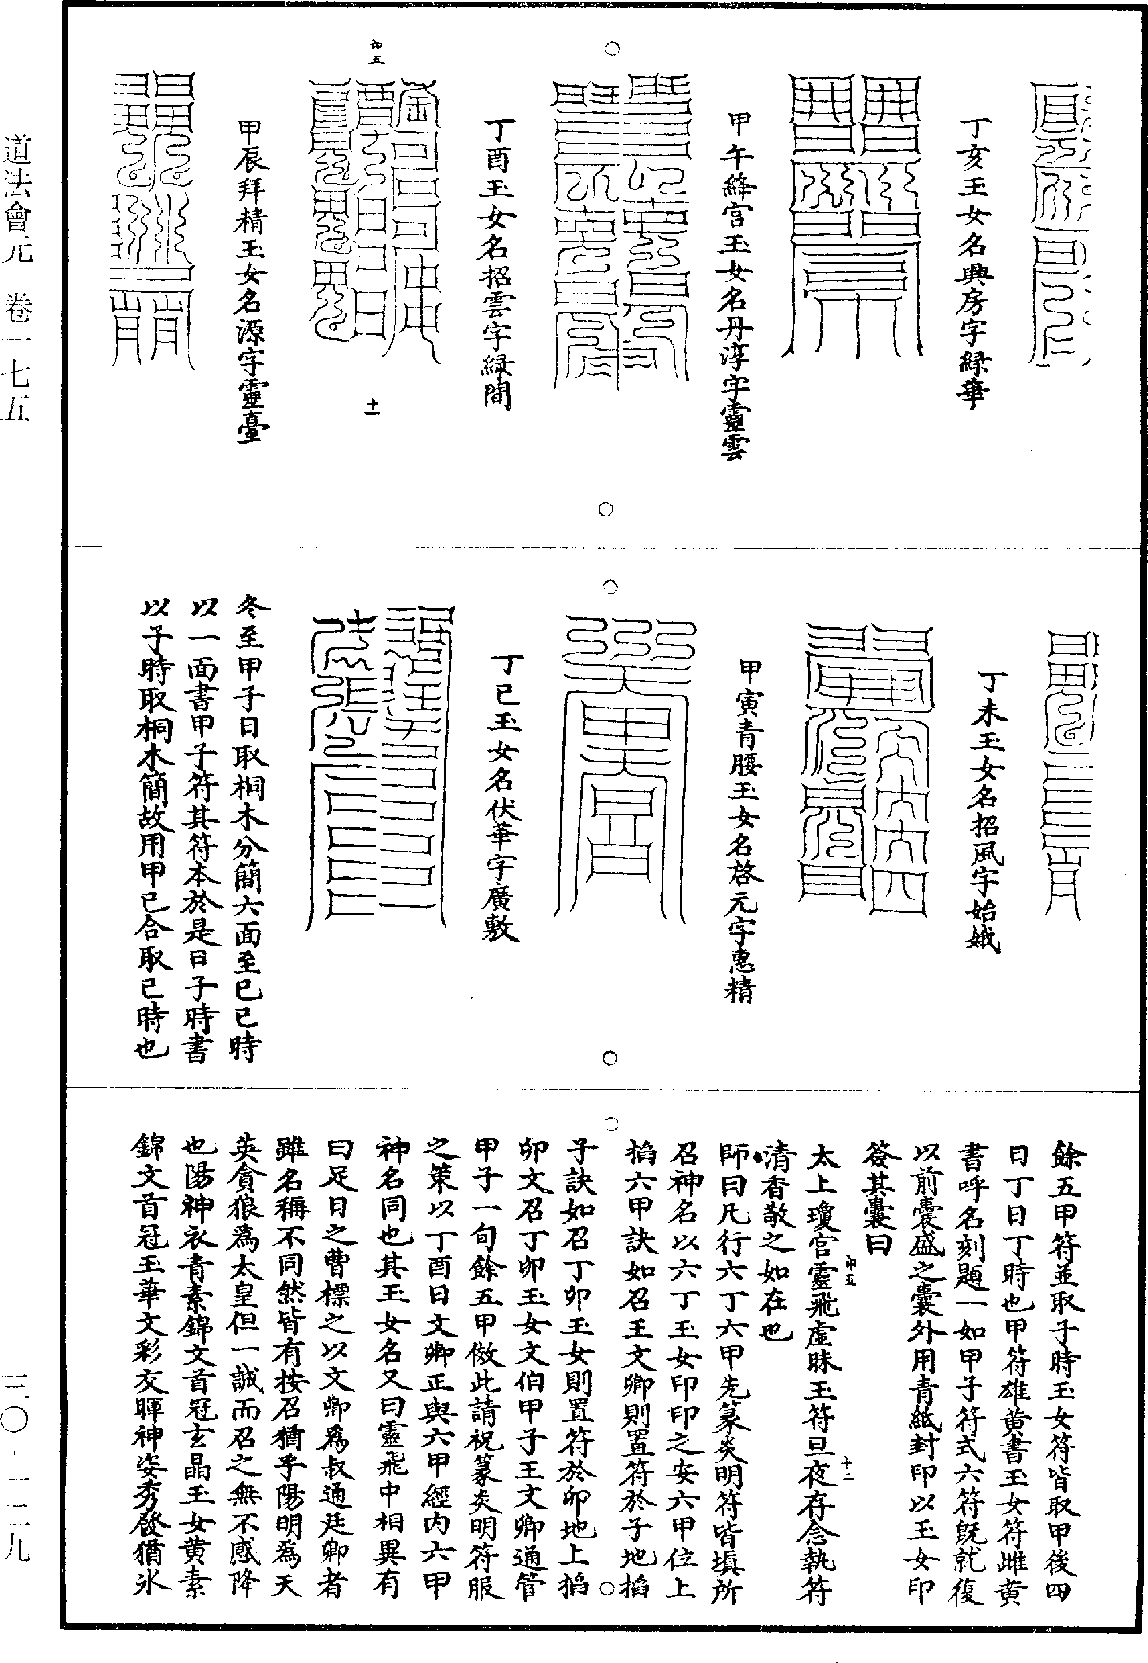 丁亥玉女名興房字綠華
甲午絳宮玉女名丹淳字靈雲
丁酉玉女名招雲字綠間
卯五
十一
甲辰拜精玉女名源字靈臺
丁未玉女名招風字始娥
甲寅青腰玉女名啓元字惠精
丁巳玉女名伏華字廣敷
冬至甲子日取桐木分簡六面至己巳時
以一面書甲子符其符本於是日子時書
以子時取桐木簡故用甲己合取巳時也
餘五甲符並取子時玉女符皆取甲後四
日丁日丁時也甲符雄黃書玉女符雌黃
書呼名刻題一如甲子符式六符旣就復
以前囊盛之囊外用青紙封印以玉女印
簽其囊曰
太上瓊宮靈飛虛昧玉符旦夜存念執符
清香敬之如在也
卯五
十二
師曰凡行六丁六甲先篆炎明符皆塡所
召神名以六丁玉女印印之安六甲位上
掐六甲訣如召王文卿則置符於子地掐
子訣如召丁卯玉女則置符於卯地上掐
卯文召丁卯玉女文伯甲子王文卿通管
甲子一旬餘五甲倣此請祝篆炎明符服
之策以丁酉日文卿正與六甲經內六甲
神名同也其玉女名又曰靈飛中相異有
曰足日之曹標之以文卿爲叔通廷卿者
雖名稱不同然皆有按召猶乎陽明爲天
英貪狼爲太皇但一誠而召之無不感降
也陽神衣青素錦文首冠玄晶玉女黃素
錦文首冠玉華文彩交暉神姿秀發猶氷
道法會元　卷一七五
三〇·一二九